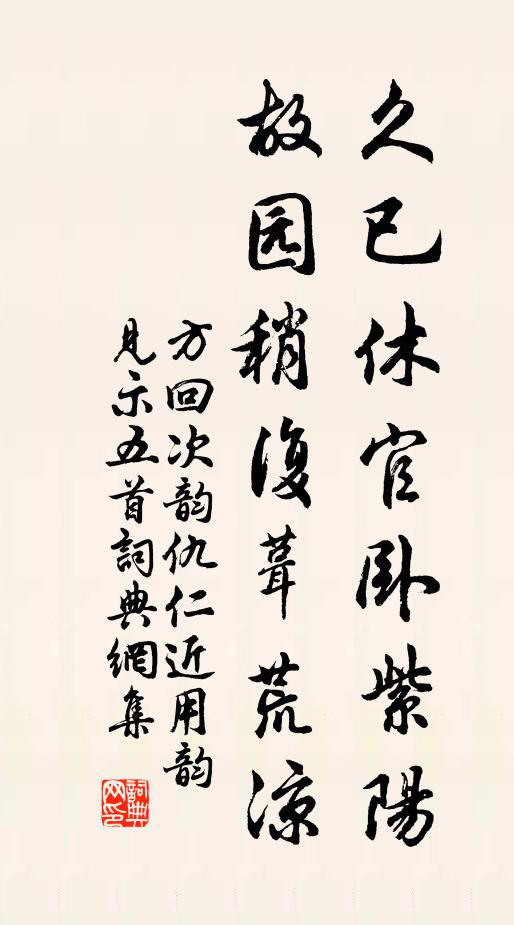 久已休官卧紫陽
故园稍復葺荒凉
方回次韵仇仁近用韵
見示五首詞典網集
詞典网印